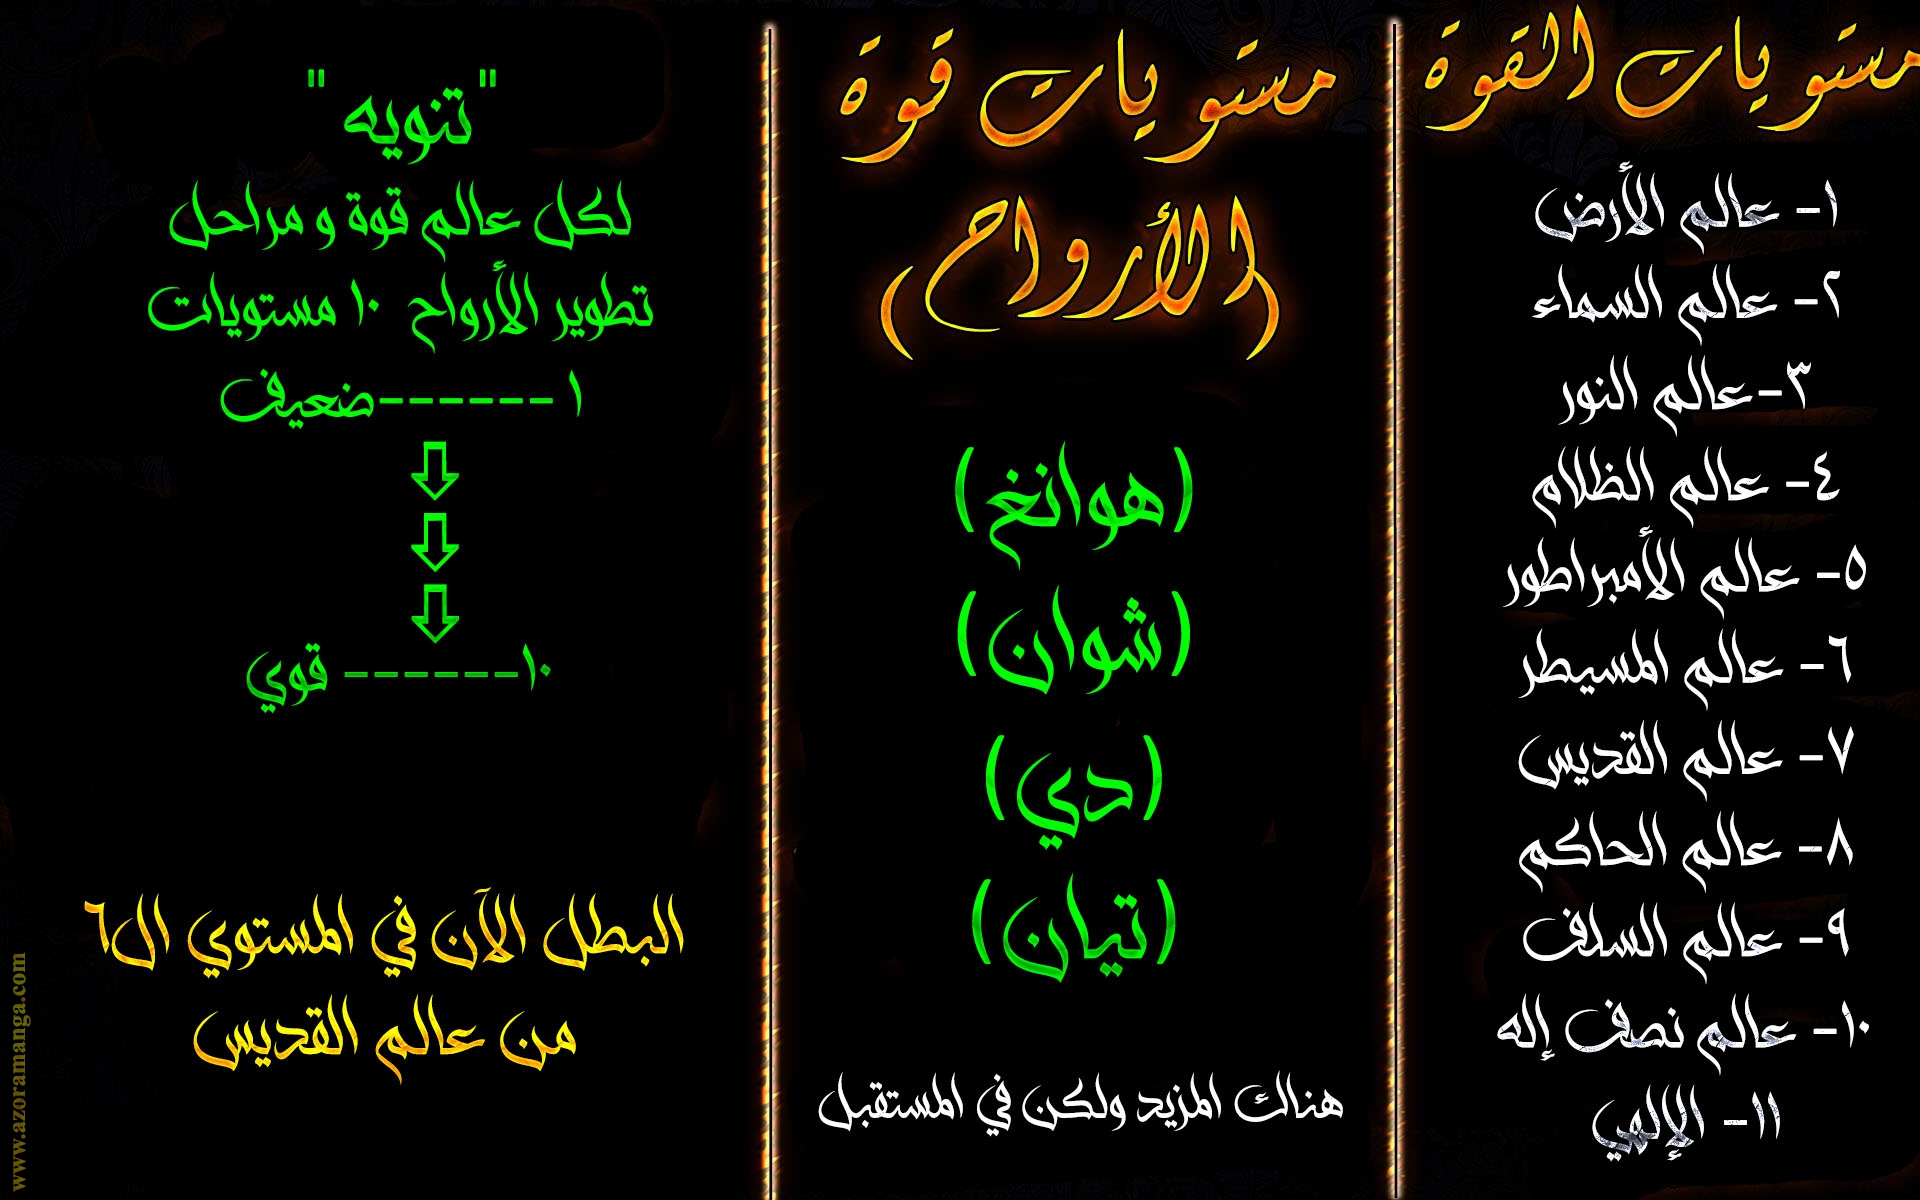 مستويات القوة
١- عالم الأرض
٢- عالم السماء
٣-عالم النور
٤- عالم الظلام
٥- عالم الأمبراطور
٦- عالم المسيطر
٧- عالم القديس
٨- عالم الحاكم
٩- عالم السلف
١٠- عالم نصف إله
١١- الإلهي
مستويات قوة
(الأرواح)
(هوانغ)
(شوان)
(دي)
(تيان)
هناك المزيد ولكن في المستقبل
"تنويه"
لكل عالم قوة و مراحل
تطوير الأرواح ١٠ مستويات
١ ------ضعيف
١٠------ قوي
البطل الآن في المستوي ال٦
من عالم القديس
www.azoramanga.com